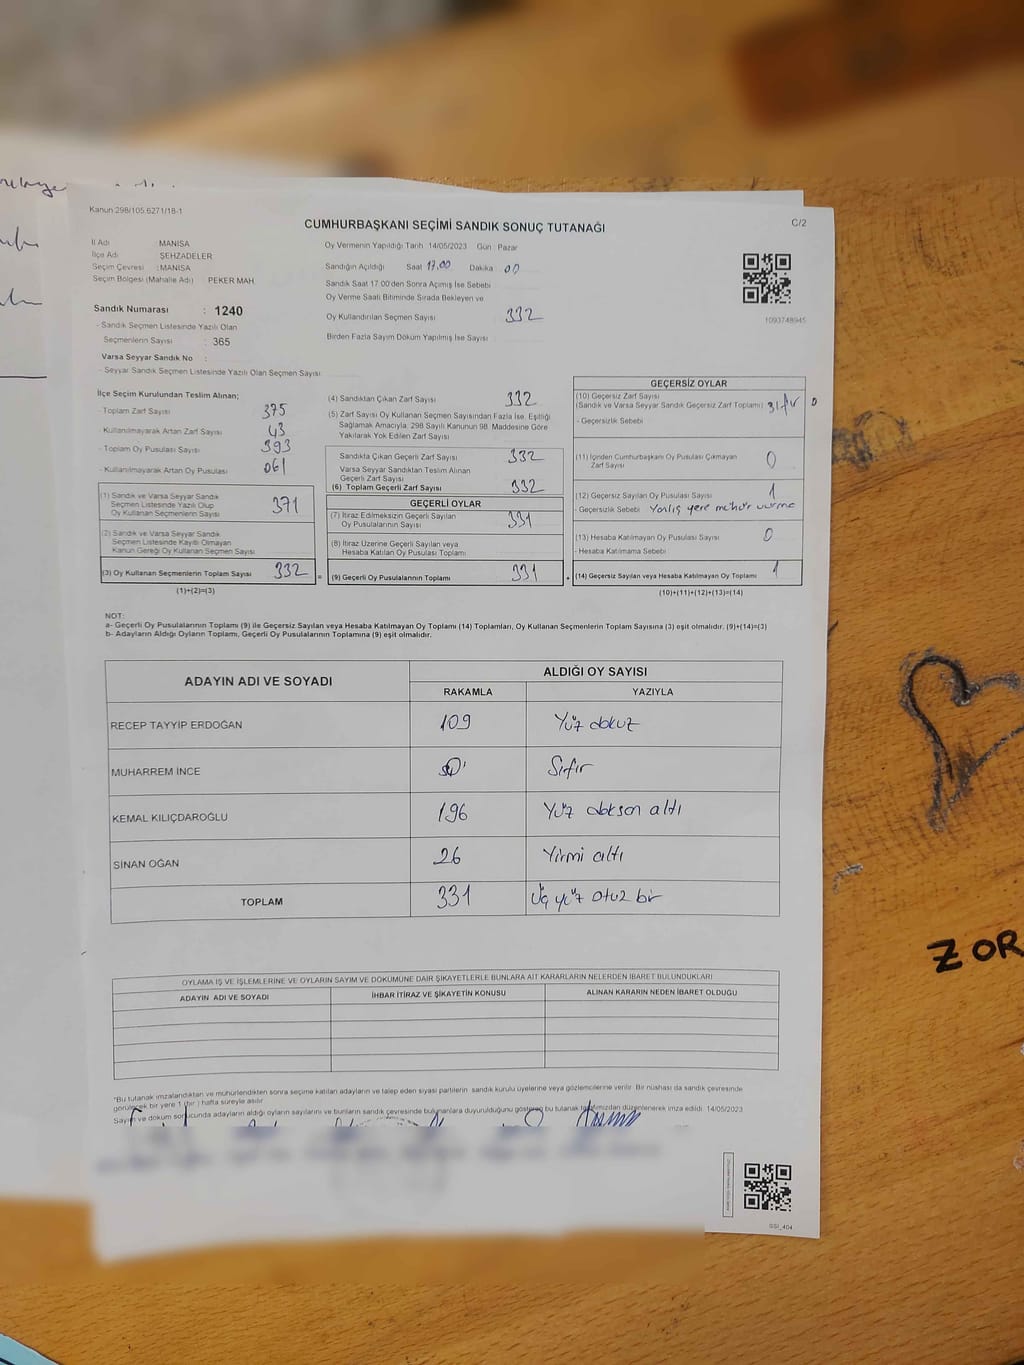 Kanun 298/105 6271/18-1
CUMHURBAŞKANI SEÇİMİ SANDIK SONUÇ TUTANAĞI
C/2
İl Adı : MANİSA
İlçe Adı : ŞEHZADELER
Seçim Çevresi : MANİSA
Seçim Bölgesi (Mahalle Adı) : PEKER MAH.
Sandık Numarası : 1240
- Sandık Seçmen Listesinde Yazılı Olan
Seçmenlerin Sayısı : 365
Varsa Seyyar Sandık No :
- Seyyar Sandık Seçmen Listesinde Yazılı Olan Seçmen Sayısı
Oy Vermenin Yapıldığı Tarih 14/05/2023 Gün : Pazar
Sandığın Açıldığı Saat 17.00 Dakika 00
Sandık Saat 17.00'den Sonra Açılmış İse Sebebi
Oy Verme Saati Bitiminde Sırada Bekleyen ve
Oy Kullandırılan Seçmen Sayısı 332
Birden Fazla Sayım Döküm Yapılmış İse Sayısı
1093748945
İlçe Seçim Kurulundan Teslim Alınan;
- Toplam Zarf Sayısı 375
- Kullanılmayarak Artan Zarf Sayısı 43
- Toplam Oy Pusulası Sayısı 393
- Kullanılmayarak Artan Oy Pusulası 061
(1) Sandık ve Varsa Seyyar Sandık
Seçmen Listesinde Yazılı Olup
Oy Kullanan Seçmenlerin Sayısı 371
(2) Sandık ve Varsa Seyyar Sandık
Seçmen Listesinde Kayıtlı Olmayan
Kanun Gereği Oy Kullanan Seçmen Sayısı
(3) Oy Kullanan Seçmenlerin Toplam Sayısı 332
(1)+(2)=(3)
(4) Sandıktan Çıkan Zarf Sayısı 332
(5) Zarf Sayısı Oy Kullanan Seçmen Sayısından Fazla İse, Eşitliği
Sağlamak Amacıyla, 298 Sayılı Kanunun 98. Maddesine Göre
Yakılarak Yok Edilen Zarf Sayısı
Sandıkta Çıkan Geçerli Zarf Sayısı 332
Varsa Seyyar Sandıktan Teslim Alınan
Geçerli Zarf Sayısı
(6) Toplam Geçerli Zarf Sayısı 332
GEÇERLİ OYLAR
(7) İtiraz Edilmeksizin Geçerli Sayılan
Oy Pusulalarının Sayısı 331
(8) İtiraz Üzerine Geçerli Sayılan veya
Hesaba Katılan Oy Pusulası Toplamı
= (9) Geçerli Oy Pusulalarının Toplamı 331
GEÇERSİZ OYLAR
(10) Geçersiz Zarf Sayısı
(Sandık ve Varsa Seyyar Sandık Geçersiz Zarf Toplamı) Sıfır 0
- Geçersizlik Sebebi
(11) İçinden Cumhurbaşkanı Oy Pusulası Çıkmayan
Zarf Sayısı 0
(12) Geçersiz Sayılan Oy Pusulası Sayısı 1
- Geçersizlik Sebebi Yanlış yere mühür vurma
(13) Hesaba Katılmayan Oy Pusulası Sayısı 0
- Hesaba Katılmama Sebebi
+ (14) Geçersiz Sayılan veya Hesaba Katılmayan Oy Toplamı 1
(10)+(11)+(12)+(13)=(14)
NOT:
a- Geçerli Oy Pusulalarının Toplamı (9) ile Geçersiz Sayılan veya Hesaba Katılmayan Oy Toplamı (14) Toplamları, Oy Kullanan Seçmenlerin Toplam Sayısına (3) eşit olmalıdır. (9)+(14)=(3)
b- Adayların Aldığı Oyların Toplamı, Geçerli Oy Pusulalarının Toplamına (9) eşit olmalıdır.
ADAYIN ADI VE SOYADI ALDIĞI OY SAYISI
RAKAMLA YAZIYLA
RECEP TAYYİP ERDOĞAN 109 Yüz dokuz
MUHARREM İNCE 0 Sıfır
KEMAL KILIÇDAROĞLU 196 Yüz doksan altı
SİNAN OĞAN 26 Yirmi altı
TOPLAM 331 Üç yüz otuz bir
OYLAMA İŞ VE İŞLEMLERİNE VE OYLARIN SAYIM VE DÖKÜMÜNE DAİR ŞİKAYETLERLE BUNLARA AİT KARARLARIN NELERDEN İBARET BULUNDUKLARI
ADAYIN ADI VE SOYADI İHBAR İTİRAZ VE ŞİKAYETİN KONUSU ALINAN KARARIN NEDEN İBARET OLDUĞU
*Bu tutanak imzalandıktan ve mühürlendikten sonra seçime katılan adayların ve talep eden siyasi partilerin sandık kurulu üyelerine veya gözlemcilerine verilir. Bir nüshası da sandık çevresinde
görülecek bir yere 1 (bir ) hafta süreyle asılır.
Sayım ve döküm sonucunda adayların aldığı oyların sayılarını ve bunların sandık çevresinde bulunanlara duyurulduğunu gösteren bu tutanak tarafımızdan düzenlenerek imza edildi. 14/05/2023
SSI_404
ZOR